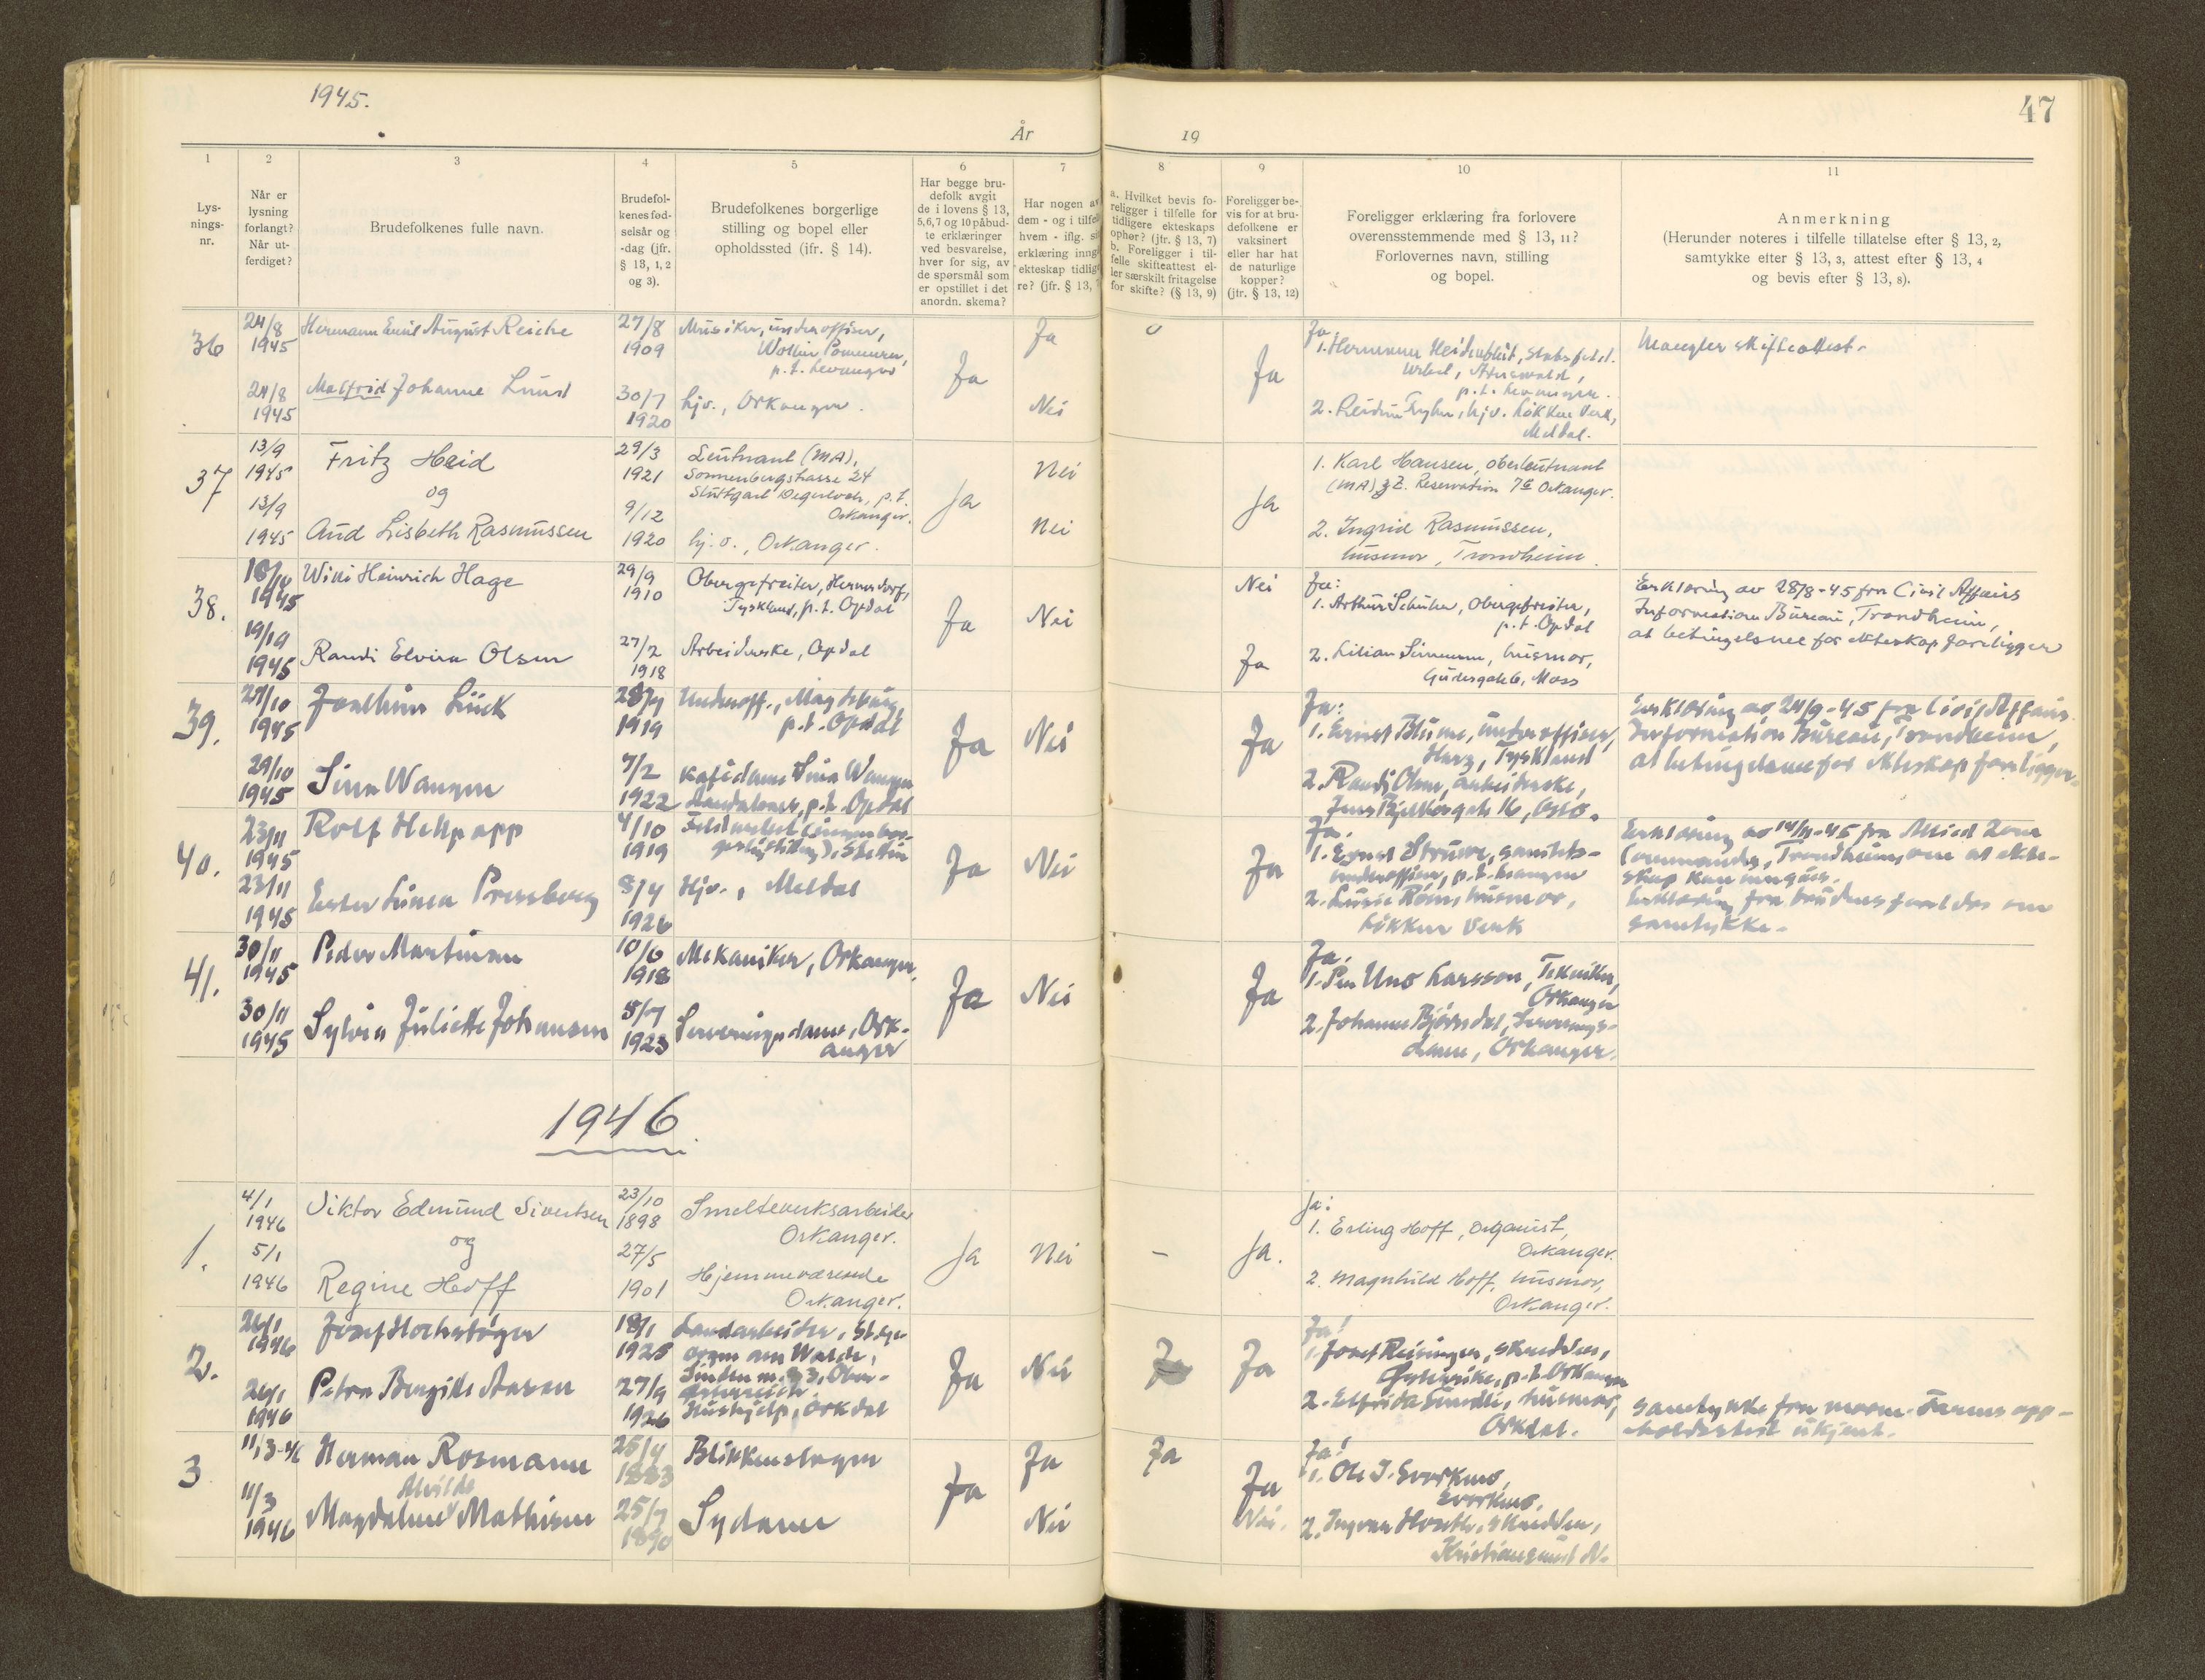 1945.
47
År 19
1
2
3
4
5
6
7
8
9
10
11
Lys-
nings-
nr.
Når er
lysning
forlangt?
Når ut-
ferdiget?
Brudefolkenes fulle navn.
Brudefol-
kenes fød-
selsår og
-dag (jfr.
§ 13, 1, 2
og 3).
Brudefolkenes borgerlige
stilling og bopel eller
opholdssted (ifr. § 14).
Har begge bru-
defolk avgit
de i lovens § 13,
5,6,7 og 10 påbud-
te erklæringer
ved besvarelse,
hver for sig, av
de spørsmål som
er opstillet i det
anordn. skema?
Har nogen a
dem - og i tilfe
hvem - iflg. s
erklæring inng
ekteskap tidlig
re? (jfr. § 13,
a. Hvilket bevis fo-
religger i tilfelle for
tidligere ekteskaps
ophør? (jtr. § 13, 7)
b. Foreligger i til-
felle skifteattest el-
ler særskilt fritagelse
for skifte? (§ 13, 9)
Foreligger be-
vis for at bru-
defolkene er
vaksinert
eller har hat
de naturlige
kopper?
(jtr. § 13, 12)
Foreligger erklæring fra forlovere
overensstemmende med § 13, 11?
Forlovernes navn, stilling
og bopel.
Anmerkning
(Herunder noteres i tilfelle tillatelse efter § 13, 2,
samtykke etter § 13, 3, attest efter § 13, 4
og bevis efter § 13, 8).
36
24/8
1945
Hermann Emil August Reiche
27/8
1909
Musiker, underoffiser,
Wollin Pommern,
p.t. Levanger
Ja
Ja
0
Ja
Ja,
1. Hermann
p.t. Levanger.
Mangler skifteattest.
24/8
1945
Malfrid Johanne Lund
30/7
1920
hjv., Orkanger.
Nei
2. hjv. Løkken Verk,
Meldal.
37
13/9
1945
Fritz Heid
og
29/3
1921
Leutnant (MA),
Sonnenbergstrasse 24
Stuttgart Degerloch, p.t.
Orkanger.
Ja
Nei
Ja
1. Karl Hansen, oberleutnant
(MA) z Z. Reservation 7a Orkanger.
13/9
1945
Aud Lisbeth Rasmussen
9/12
1920
hj.v., Orkanger.
Nei
2. Ingrid Rasmussen,
husmor, Trondheim.
38.
1945
Willi Heinrich Hage
29/9
1910
Obergefreiter,
Tyskland, p.t. Opdal
Ja
Nei
Nei
Ja:
1. Arthur Schuher, obergefreiter,
p.t. Opdal
Erklæring av 28/8-45 fra Civil Affairs
Information Bureau, Trondheim,
at betingelsene for ekteskap foreligger
1945
Randi Elvira Olsen
27/2
1918
Arbeiderske, Opdal
Ja
2. Lilian husmor,
Moss
39.
1945
Joachim Lück
1919
Underoff., Magdeburg,
p.t. Opdal
Ja
Nei
Ja
Ja:
1. Ernst Blume, underoffiser,
Harz, Tyskland
Erklæring av 24/9-45 fra Civil Affairs
Information Bureau, Trondheim,
at betingelsene for ekteskap foreligger.
29/10
1945
Sina Wangen
7/2
1922
Kafédame Sina Wangen
Aandalsnes, p.t. Opdal
2. Randi Olsen, arbeiderske,
Jens Bjelkesgate 16, Oslo.
40.
23/11
1945
Rolf Hellpapp
4/10
1919
Stettin
Ja
Nei
Ja
Ja.
1. Ernst Struwe, sanitets-
underoffiser, p.t. Levanger
Erklæring av 14/11-45 fra Allied Zone
Commander, Trondheim, om at ekte-
skap kan inngåes.
23/11
1945
Ester Linea Pressberg
8/4
1926
Hjv., Meldal
2. husmor,
Løkken Verk
Erklæring fra brudens foreldre om
samtykke.
41.
30/11
1945
Peder Martinsen
10/6
1918
Mekaniker, Orkanger.
Ja
Nei
Ja
Ja.
1. Per Uno Larsson, Tekniker,
Orkanger
30/11
1945
Sylvia Juliette Johansen
5/7
1923
Serveringsdame, Ork-
anger
2. Johanne Bjørsdal, Serverings-
dame, Orkanger.
1946.
1.
4/1
1946
Viktor Edmund Sivertsen
og
23/10
1898
Smelteverksarbeider
Orkanger.
Ja
Nei
—
Ja.
Ja:
1. Erling Hoff, Organist,
Orkanger.
5/1
1946
Regine Hoff
27/5
1901
Hjemmeværende
Orkanger.
2. Magnhild Hoff, husmor,
Orkanger.
2.
26/1
1946
Josef Hochstöger
18/1
1925
Landarbeider,
am Walde,
Linden nr. 23, Ober-
österreich.
Ja
Nei
Ja
Ja
Ja!
1. Josef Reisinger, skredder,
Østerrike, p.t. Orkanger
26/1
1946
Petra Bergitte Aasen
27/9
1926
Hushjelp, Orkdal
2. Elfrida husmor,
Orkdal.
Samtykke fra moren. Farens opp-
holdssted ukjent.
3
11/3-46
Herman Rosmann
25/4
1883
Blikkenslager
Ja
Ja
Ja
Ja
Ja!
1. Ole J. Svorkmo,
Svorkmo.
11/3
1946
Alvilde
Magdalene Mathisen
25/7
1890
Sydame
Nei
Nei.
2. Ingvar skredder,
Kristiansund N.